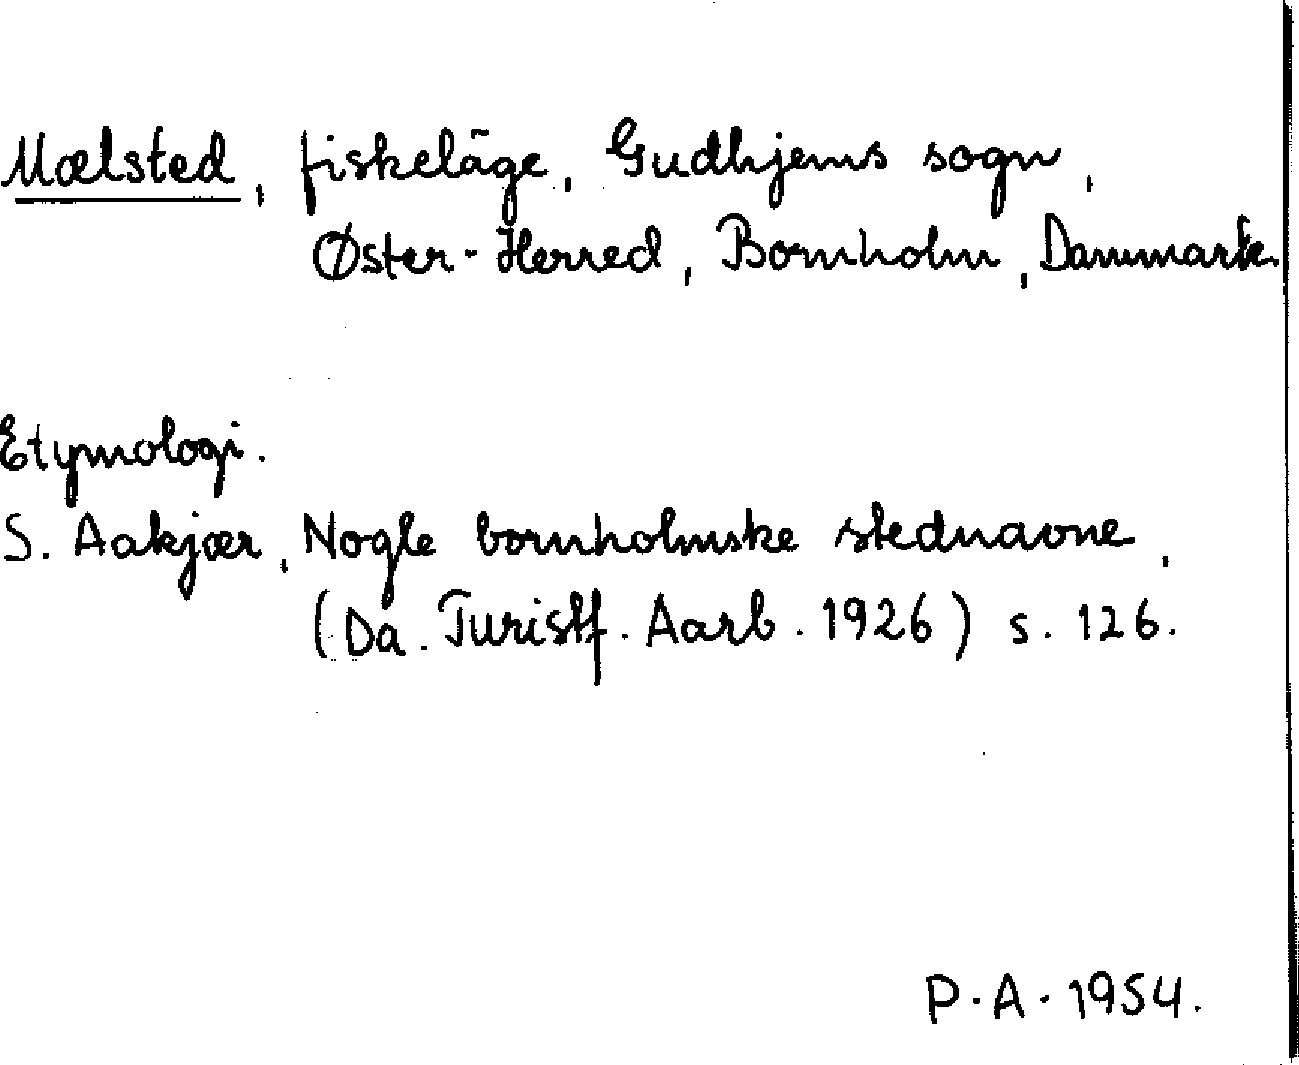 Mælsted, fiskeläge, Gudhjems sogn,
Øster-Herred, Bornholm, Danmark.
Etymologi.
S. Aakjær, Nogle bornholmske stednavne,
(Da. Turistf. Aarb. 1926) s. 126.
P.A. 1954.